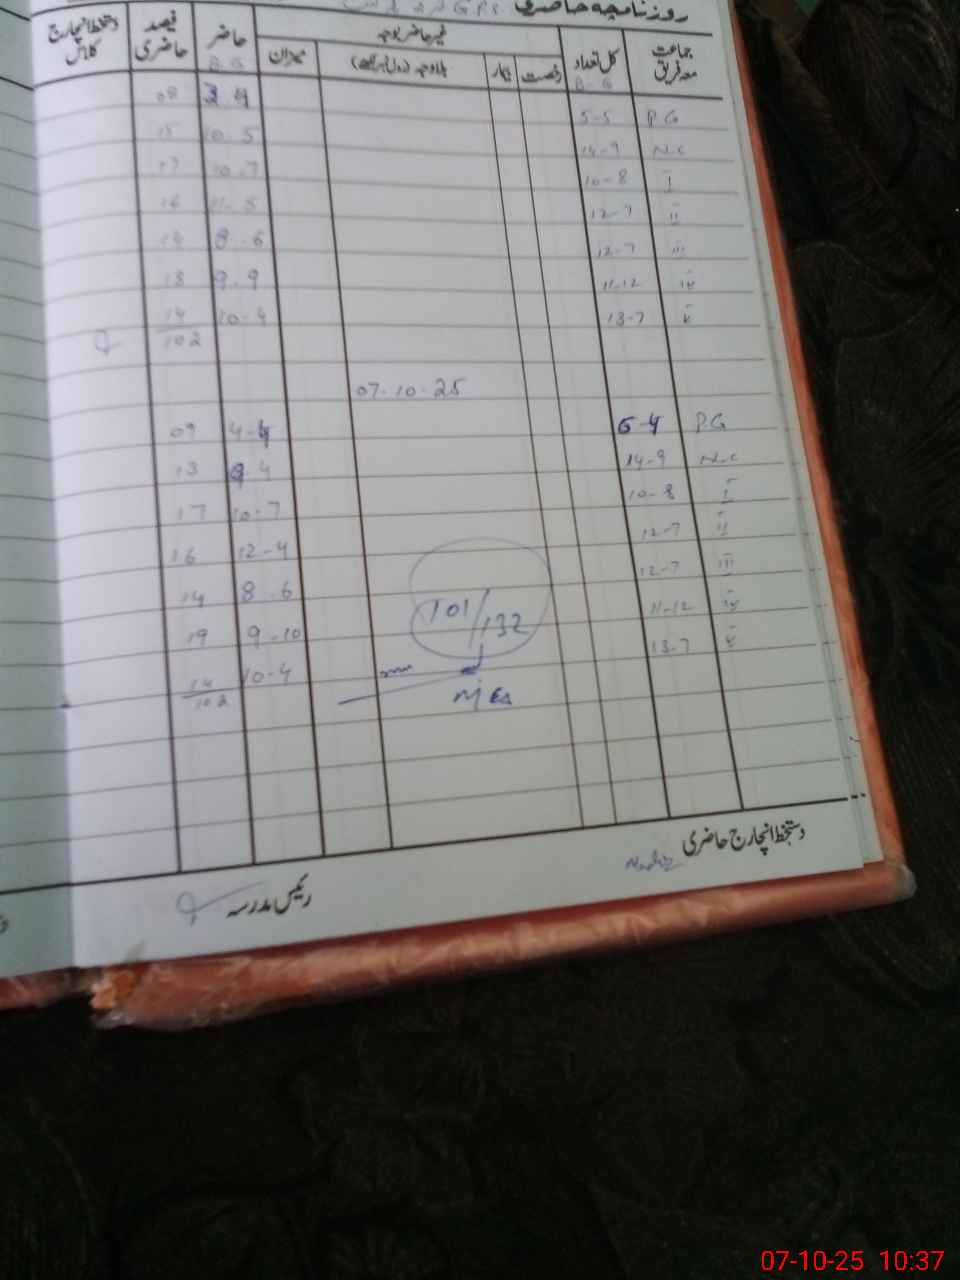 روزنامچہ حاضری G.P.S
جماعت معہ فریق کل تعداد غیر حاضر بوجہ حاضر فیصد حاضری دستخط انچارج کلاس
رخصت بیمار بلاوجہ میزان
B-G B.G
P.G 5-5 08
N.C 14-9 10-5 15
I 10-8 10-7 17
II 12-7 11-5 16
III 12-7 8-6 14
IV 11-12 9-9 18
V 13-7 10-4 14
102
07-10-25
P.G 4-4 09
N.C 14-9 13
I 10-8 10-7 17
II 12-7 12-4 16
III 12-7 8-6 14
IV 11-12 9-10 19
V 13-7 10-4 14
102
101/132
دستخط انچارج حاضری
رئیس مدرسہ
07-10-25 10:37